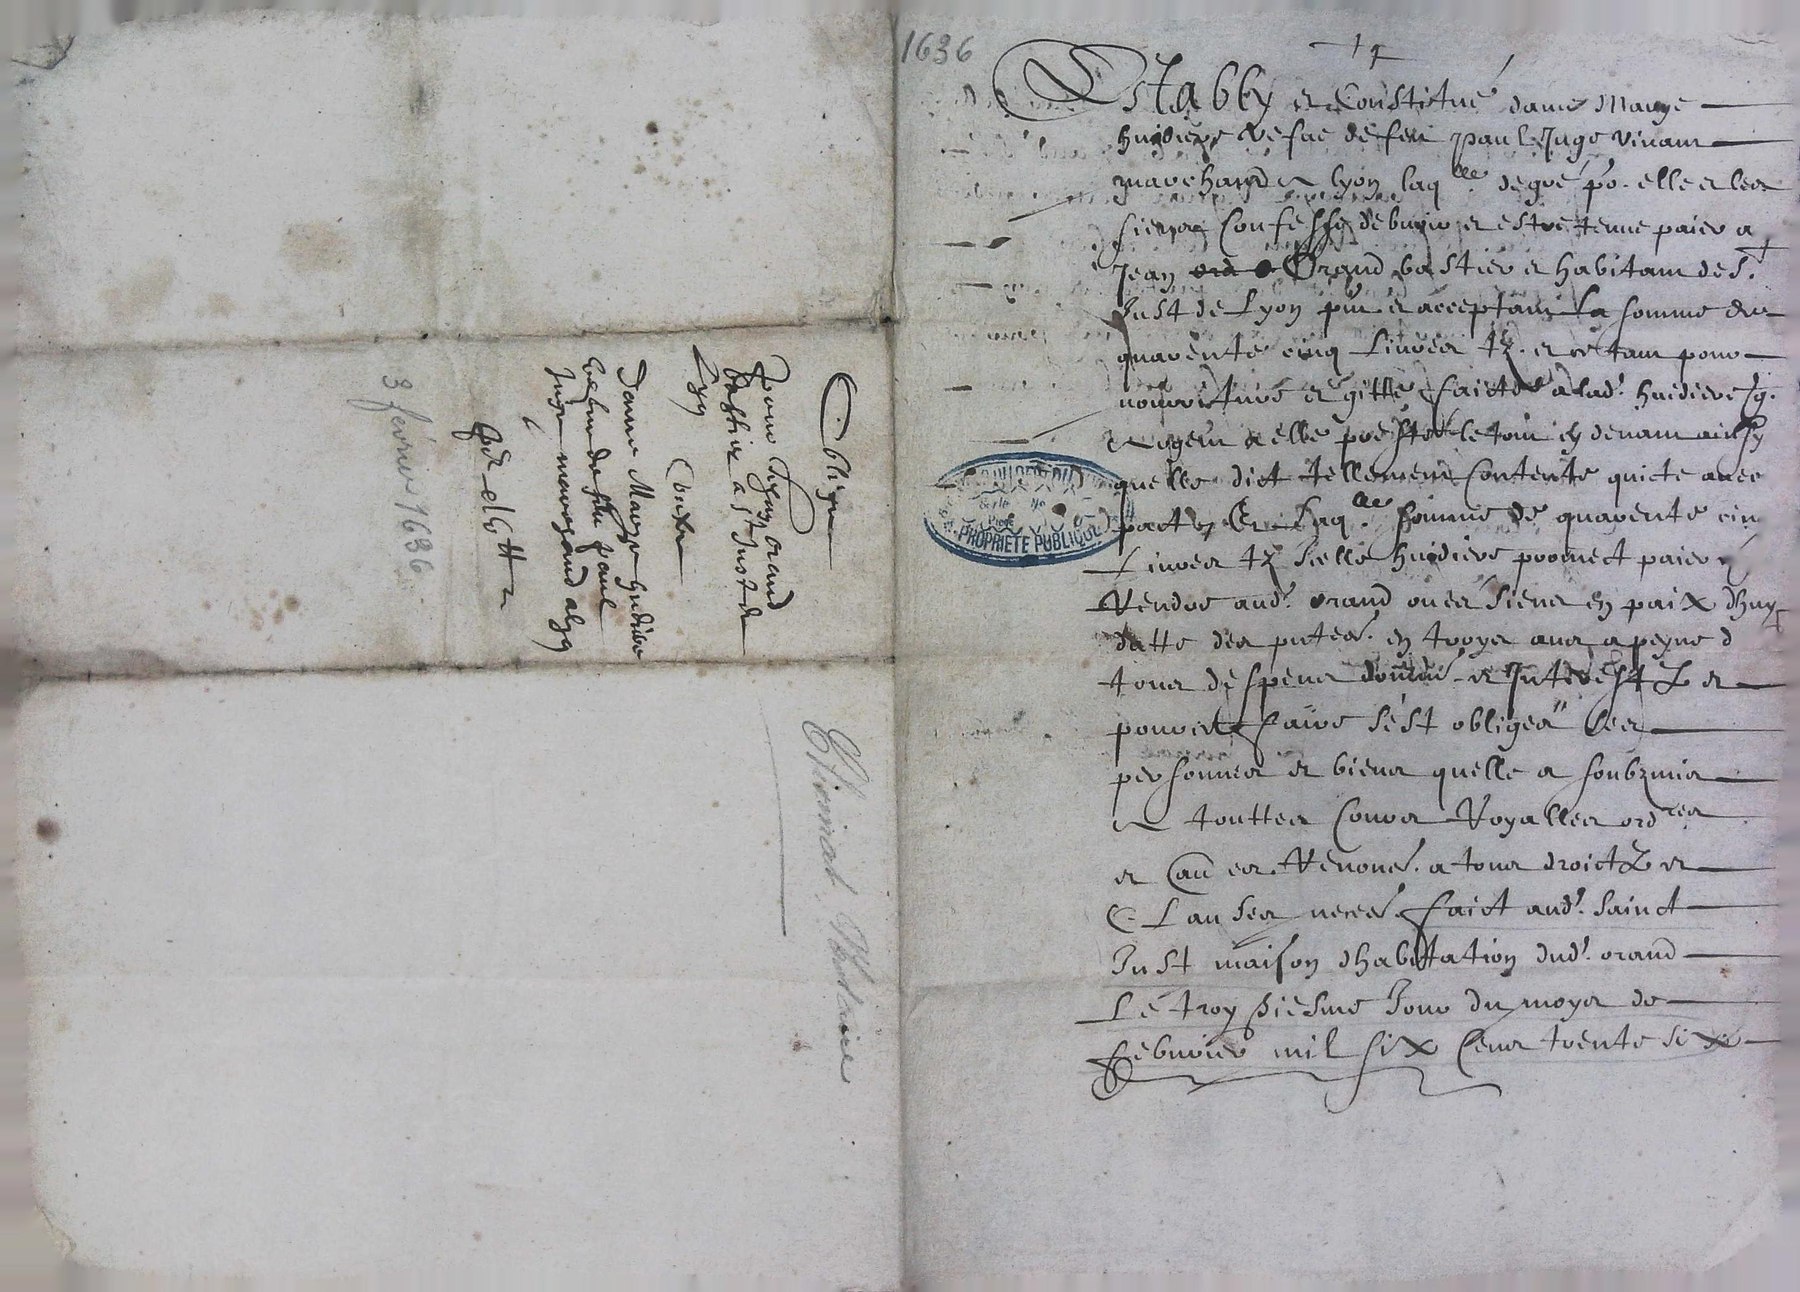 Obligaon
pour Jehan orand
bastier a st Just de
Lyon
Contre
Dame Marye hudiere
vefve de feu paul
Juge marchand a lyon
de 45 tt
3 février 1636
Etiennat, Notaire
1636
Estably et Constitué dame Marye
hudiere vefve de feu paul Juge vivant
marchand a lyon laqlle de gré po. elle et les
siens Confesse debvoir et estre tenue paier a
Jean Orand bastier et habitant de S.
Just de Lyon pnt et acceptant La somme de
quarente cinq Livres tz. et ce tant pour
nourriture et gitte faicte a lad. hudiere
quelle dict tellement Contente quicte avec
pacte Laqlle somme de quarente cinq
Livres tz Icelle hudiere promect paier
Rendre aud. orand ou es siens en paix d'huy
datte des pntes en troys ans a peyne d
tous despens et Interestz et
pource faire s'est obligéa ses
personnes et biens quelle a soubzmis
A touttes Cours Royalles ordres
et Renonc. a tous droictz et
Clauses necess. faict aud. Sainct
Just maison d'habittation dud. orand
Le troysiesme Jour du moys de
febvrier mil six Cens trente six
PROPRIETE PUBLIQUE